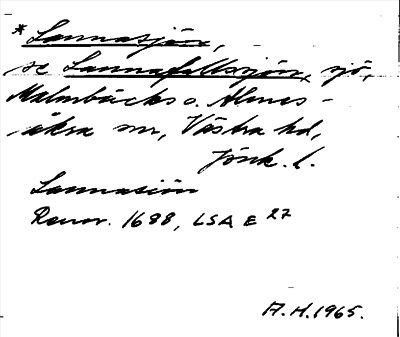 * Sannasjön,
se Sannafallssjön, sjö,
Malmbäcks o. Almes-
åkra snr, Västra hd,
Jönk. l.
Sannasiön
Renov. 1688, LSA E 27
A.H. 1965.